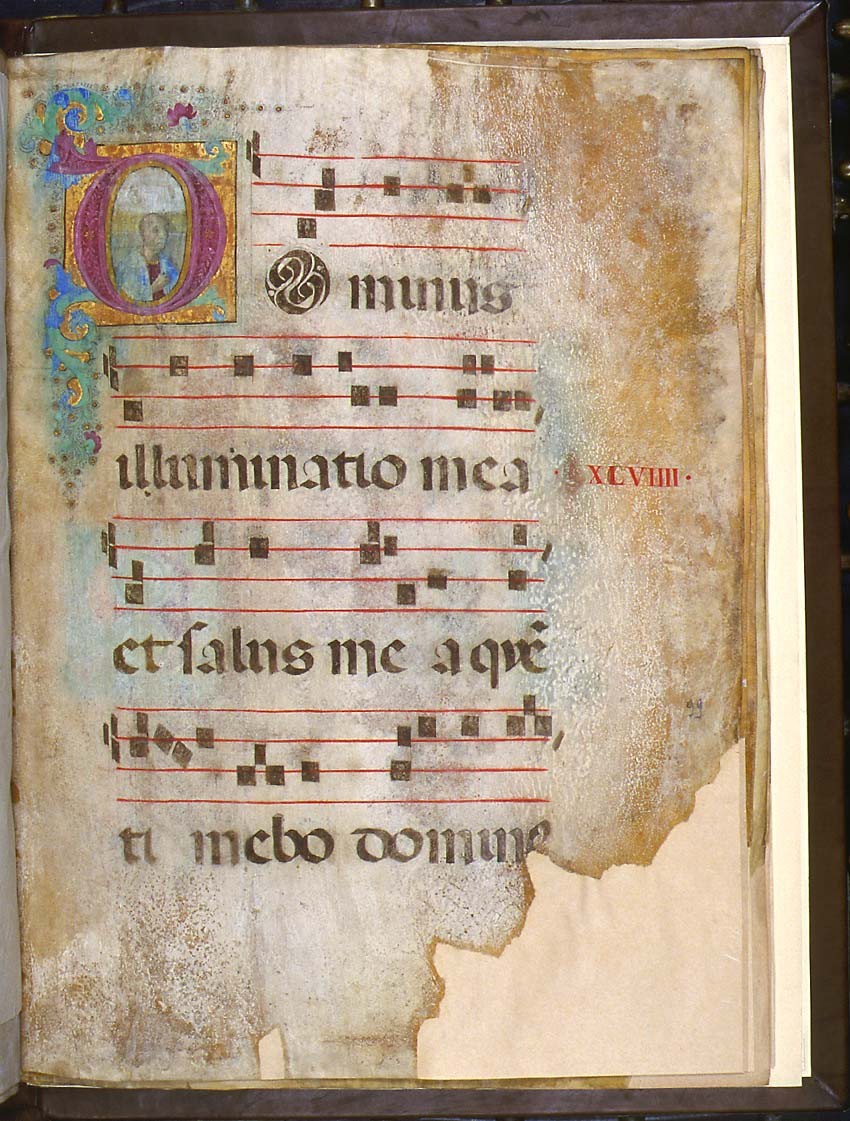 DOminus
illuminatio mea
· XLVIIII ·
et salus me a quē
99
ti mebo domine